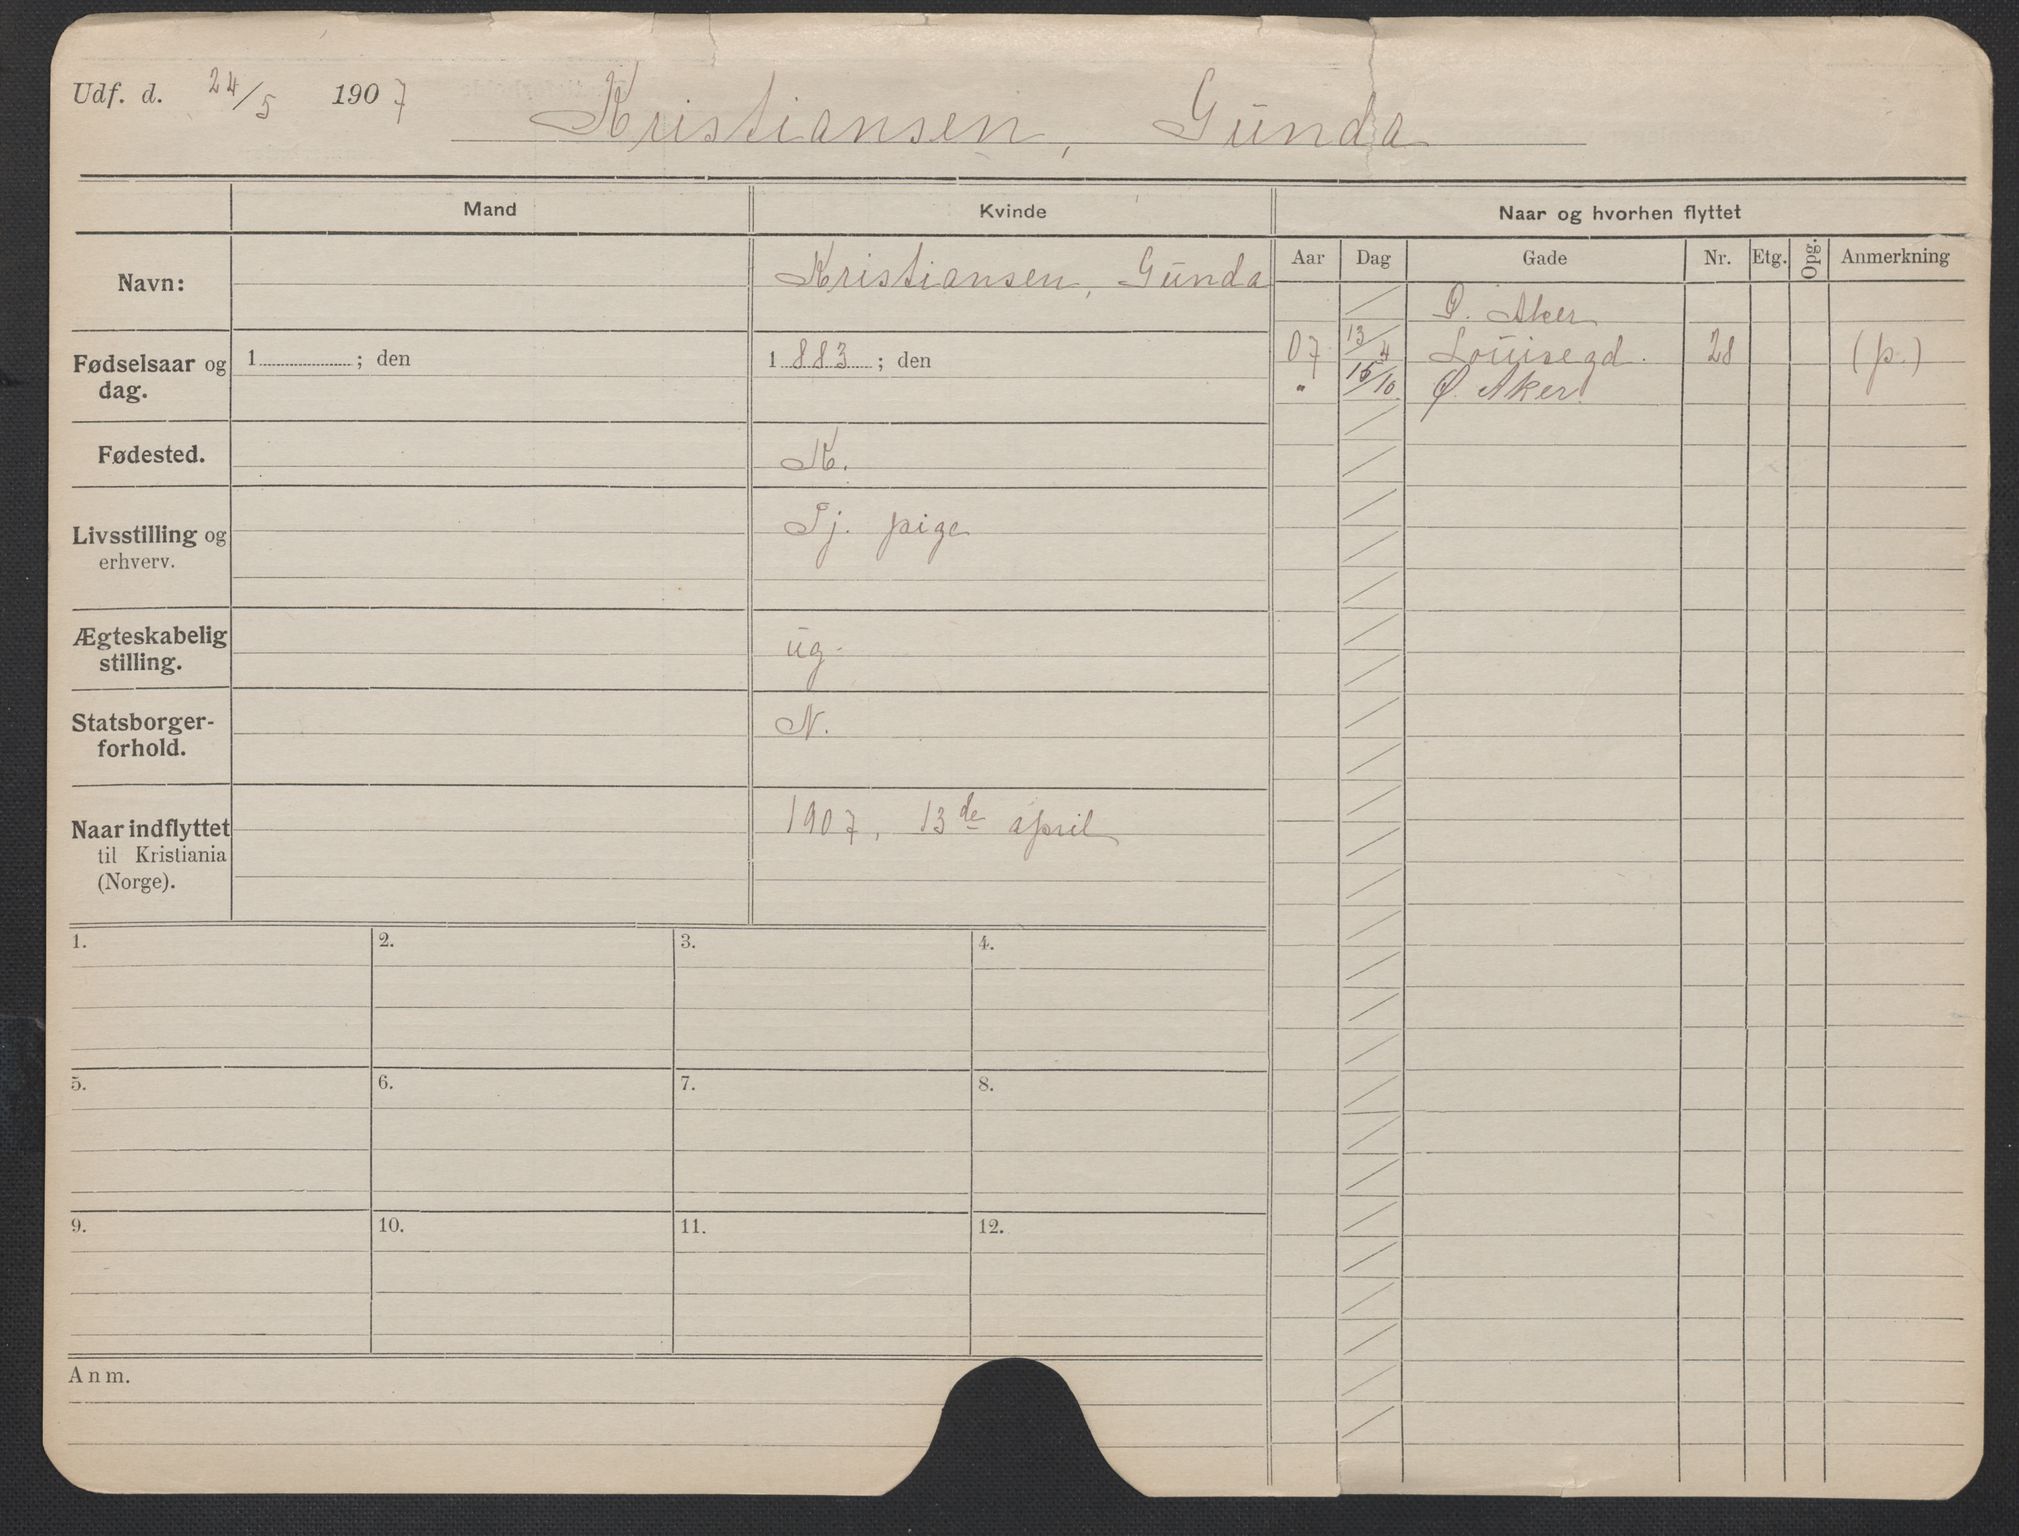 Udf. d. 24/5 1907 Kristiansen, Gunda
Mand Kvinde Naar og hvorhen flyttet
Aar Dag Gade Nr. Etg. Opg. Anmerkning
Navn: Kristiansen, Gunda
Ø. Aker
Fødselsaar og dag. 1 ; den 1 883 ; den
07 13/4 Louisegd. 28 (p.)
" 15/10 Ø. Aker
Fødested. K.
Livsstilling og erhverv. Tj. pige
Ægteskabelig stilling. ug.
Statsborger-
forhold. N.
Naar indflyttet
til Kristiania
(Norge). 1907, 13de april
1. 2. 3. 4.
5. 6. 7. 8.
9. 10. 11. 12.
Anm.